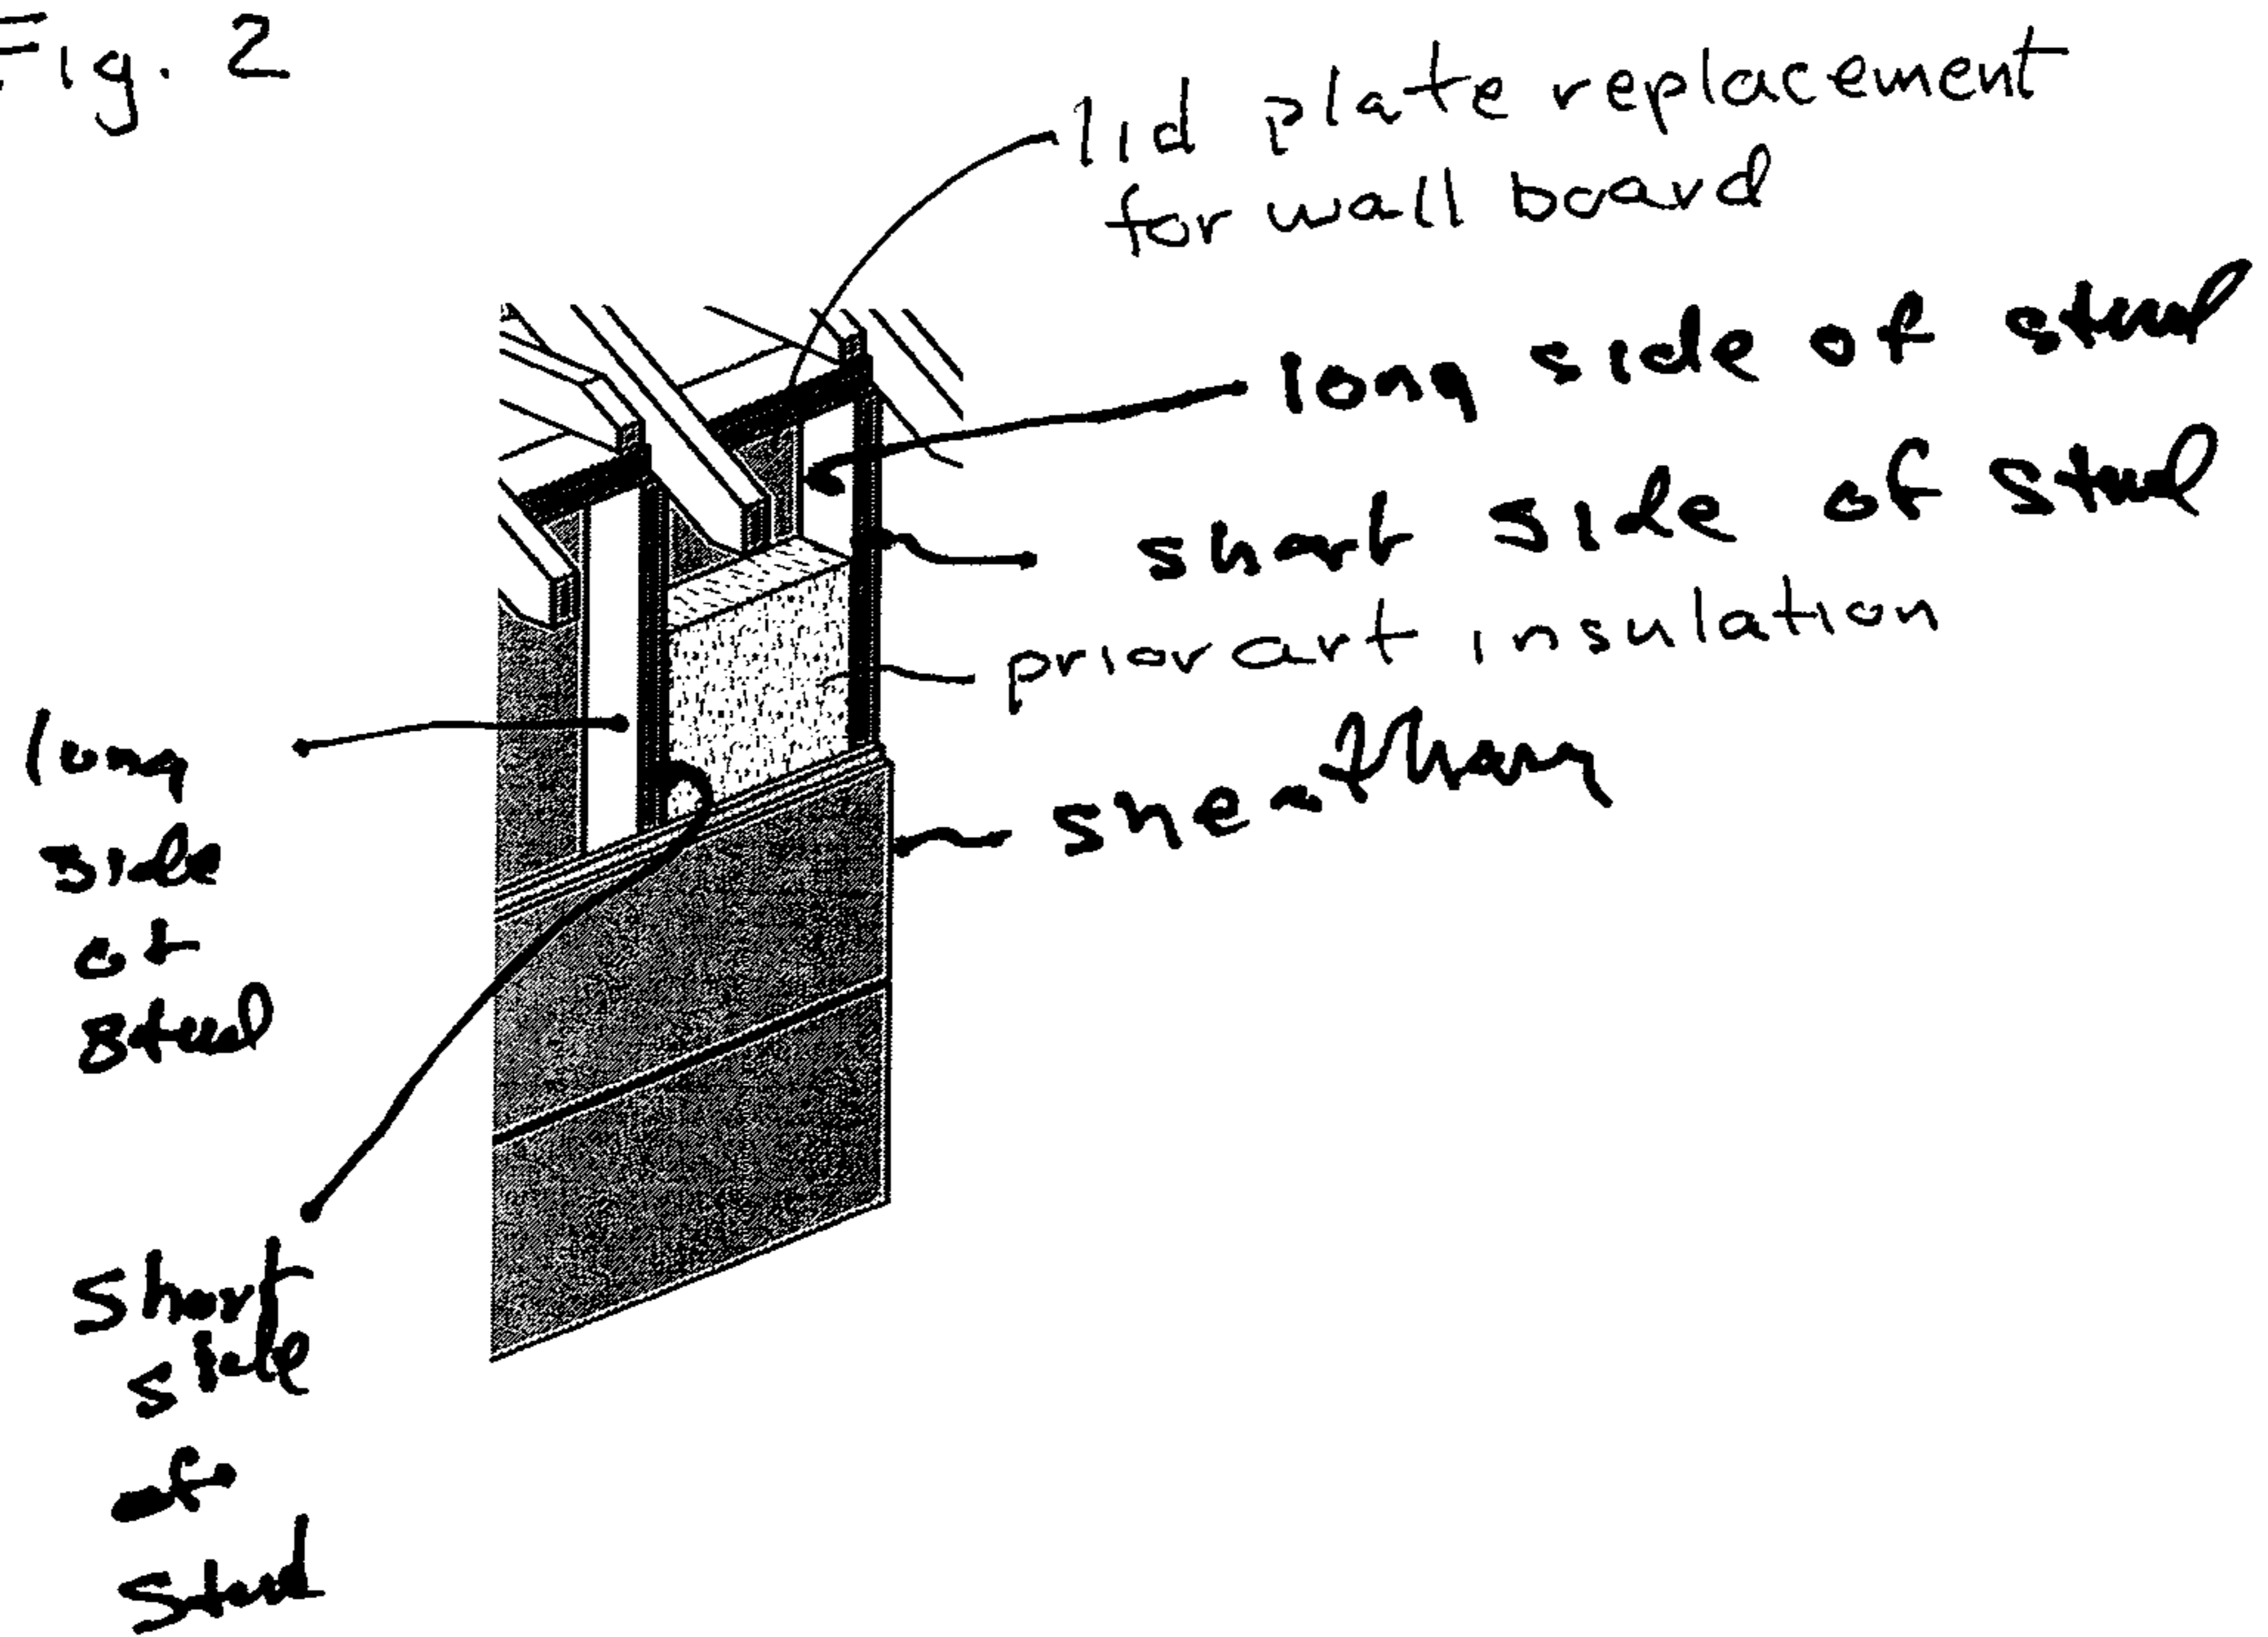 Fig. 2
lid plate replacement
for wall board
long side of stud
short side of stud
prior art insulation
sheathing
long
side
of
stud
short
side
of
stud